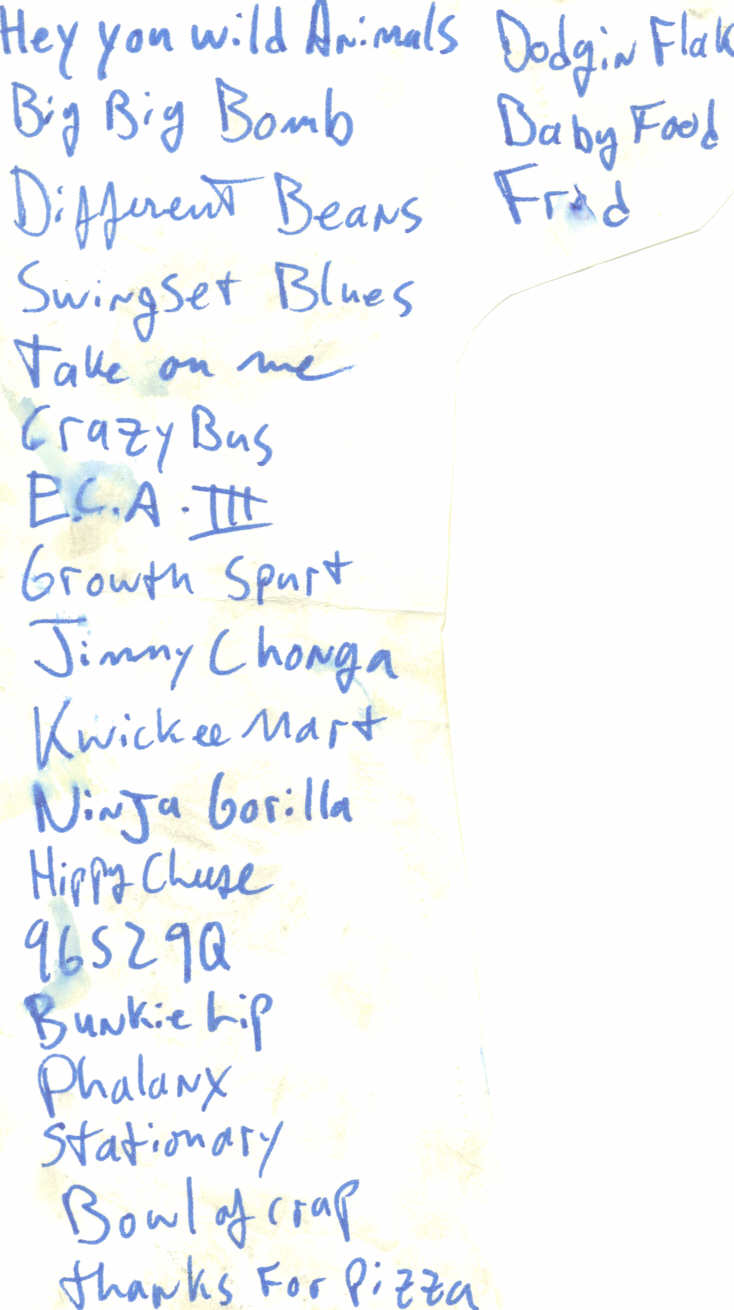 Hey you wild Animals
Big Big Bomb
Different Beans
Swingset Blues
Take on me
Crazy Bus
E.C.A. III
Growth Spurt
Jimmy Chonga
Kwickee Mart
Ninja Gorilla
Hippy Cheese
96S29Q
Bunkie Lip
Phalanx
Stationary
Bowl of crap
thanks For Pizza
Dodgin Flak
Baby Food
Fred